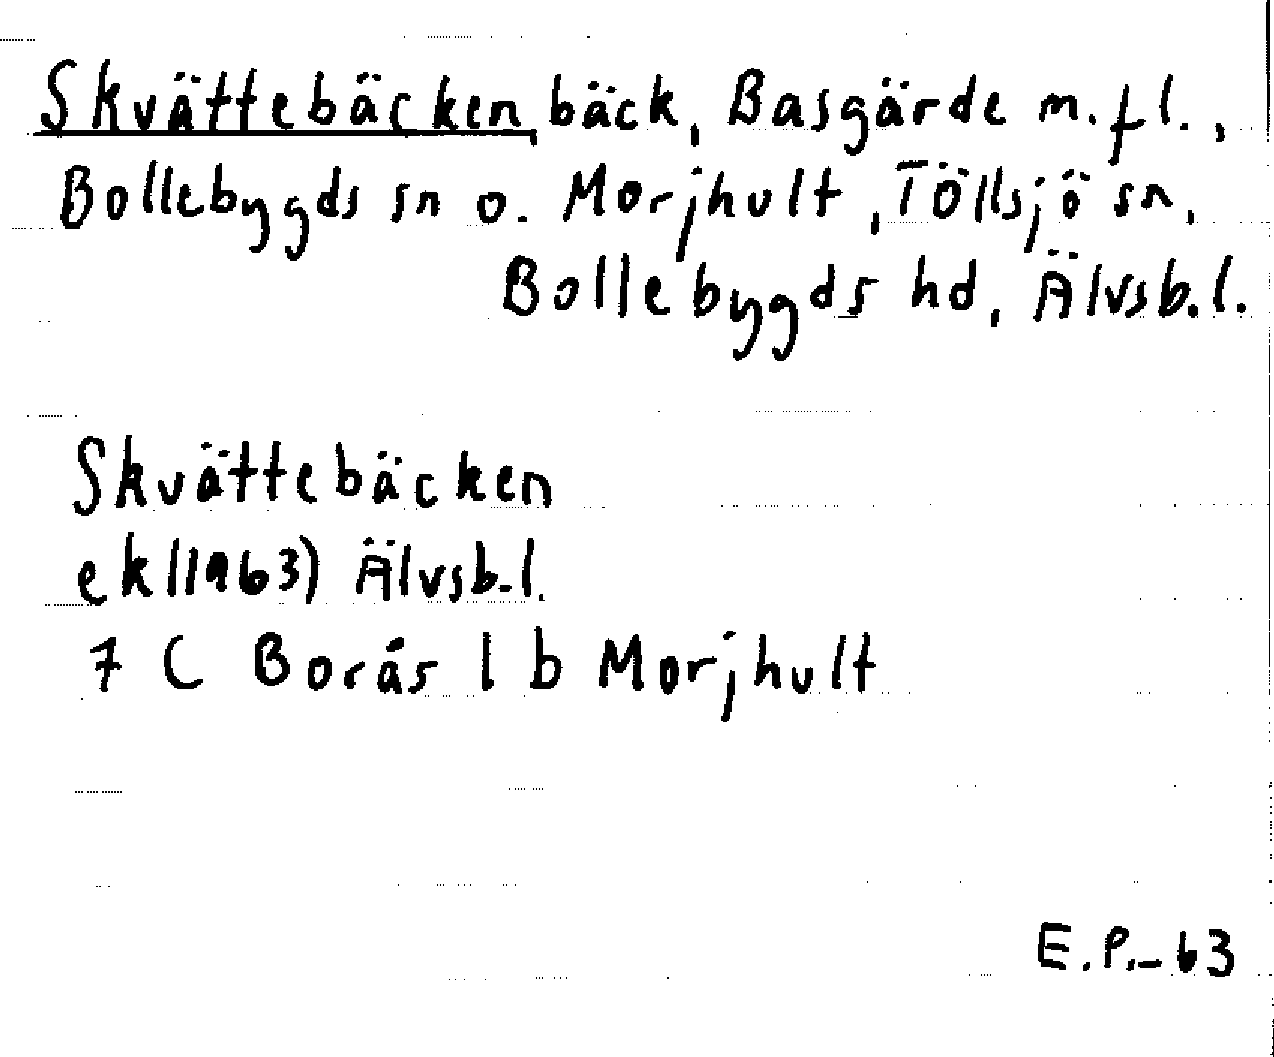 Skvättebäcken, bäck, Basgärde m.fl.,
Bollebygds sn o. Morjhult, Töllsjö sn,
Bollebygds hd, Älvsb.l.
Skvättebäcken
ek(1963) Älvsb.l.
7 C Borås 1 b Morjhult
E.P.-63